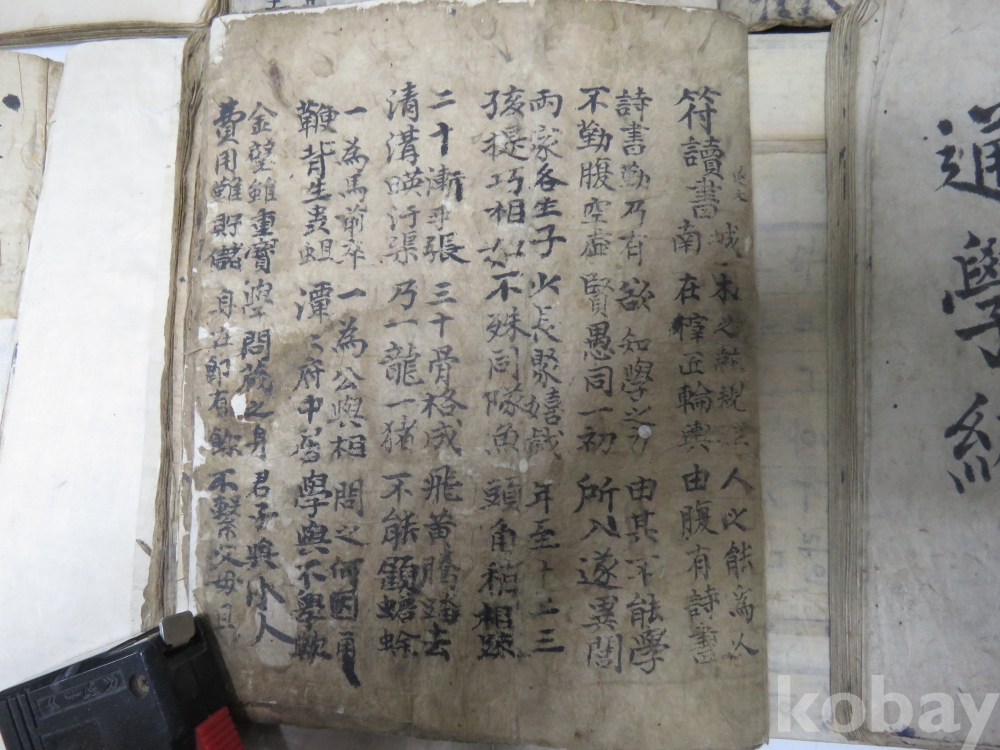 通學
符讀書城南
木之就規矩 人之能為人
在梓匠輪輿 由腹有詩書
詩書勤乃有 欲知學之力 由其不能學
不勤腹空虛 賢愚同一初 所入遂異閭
兩家各生子 少長聚嬉戲 年至十二三
孩提巧相如 不殊同隊魚 頭角稍相疎
二十漸乖張 三十骨格成 飛黃騰踏去
清溝暎汙渠 乃一龍一猪 不能顧蟾蜍
一為馬前卒 一為公與相 問之何因爾
鞭背生虫蛆 潭〻府中居 學與不學歟
金璧雖重寶 學問藏之身 君子與小人
費用難貯儲 身在即有餘 不繫父母且
kobay